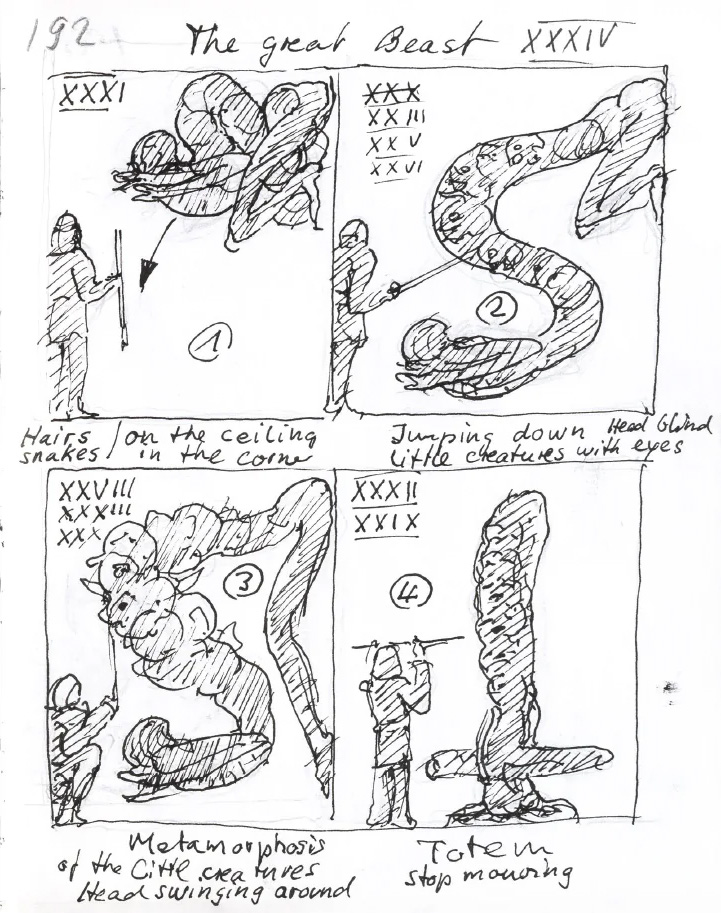 192
The great Beast XXXIV
XXXI
1
XXX
XXIII
XXV
XXVI
2
Hairs / on the ceiling
snakes / in the corner
Jumping down Head blind
little creatures with eyes
XXVIII
XXXIII
XXX
3
XXXII
XXIX
4
Metamorphosis
of the Little creatures
Head swinging around
Totem
stop mouving